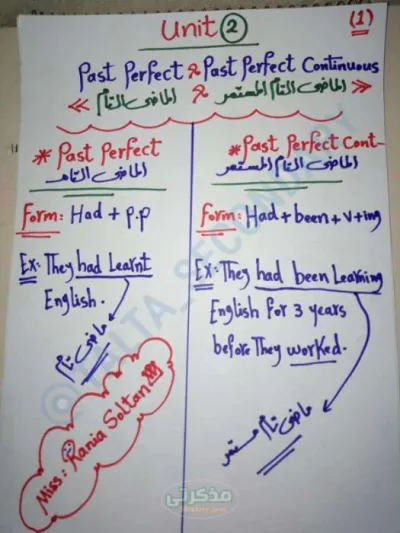 Unit 2
(1)
Past Perfect & Past Perfect Continuous
<< الماضى التام & الماضى التام المستمر >>
* Past Perfect
الماضى التام
Form: Had + p.p
Ex: They had Learnt
English.
ماضى تام
Miss: Rania Soltan
* Past Perfect Cont-
الماضى التام المستمر
Form: Had + been + v + ing
Ex: They had been Learning
English for 3 years
before They worked.
ماضى تام مستمر
@TALTA_SECONDARY
مذكرتى